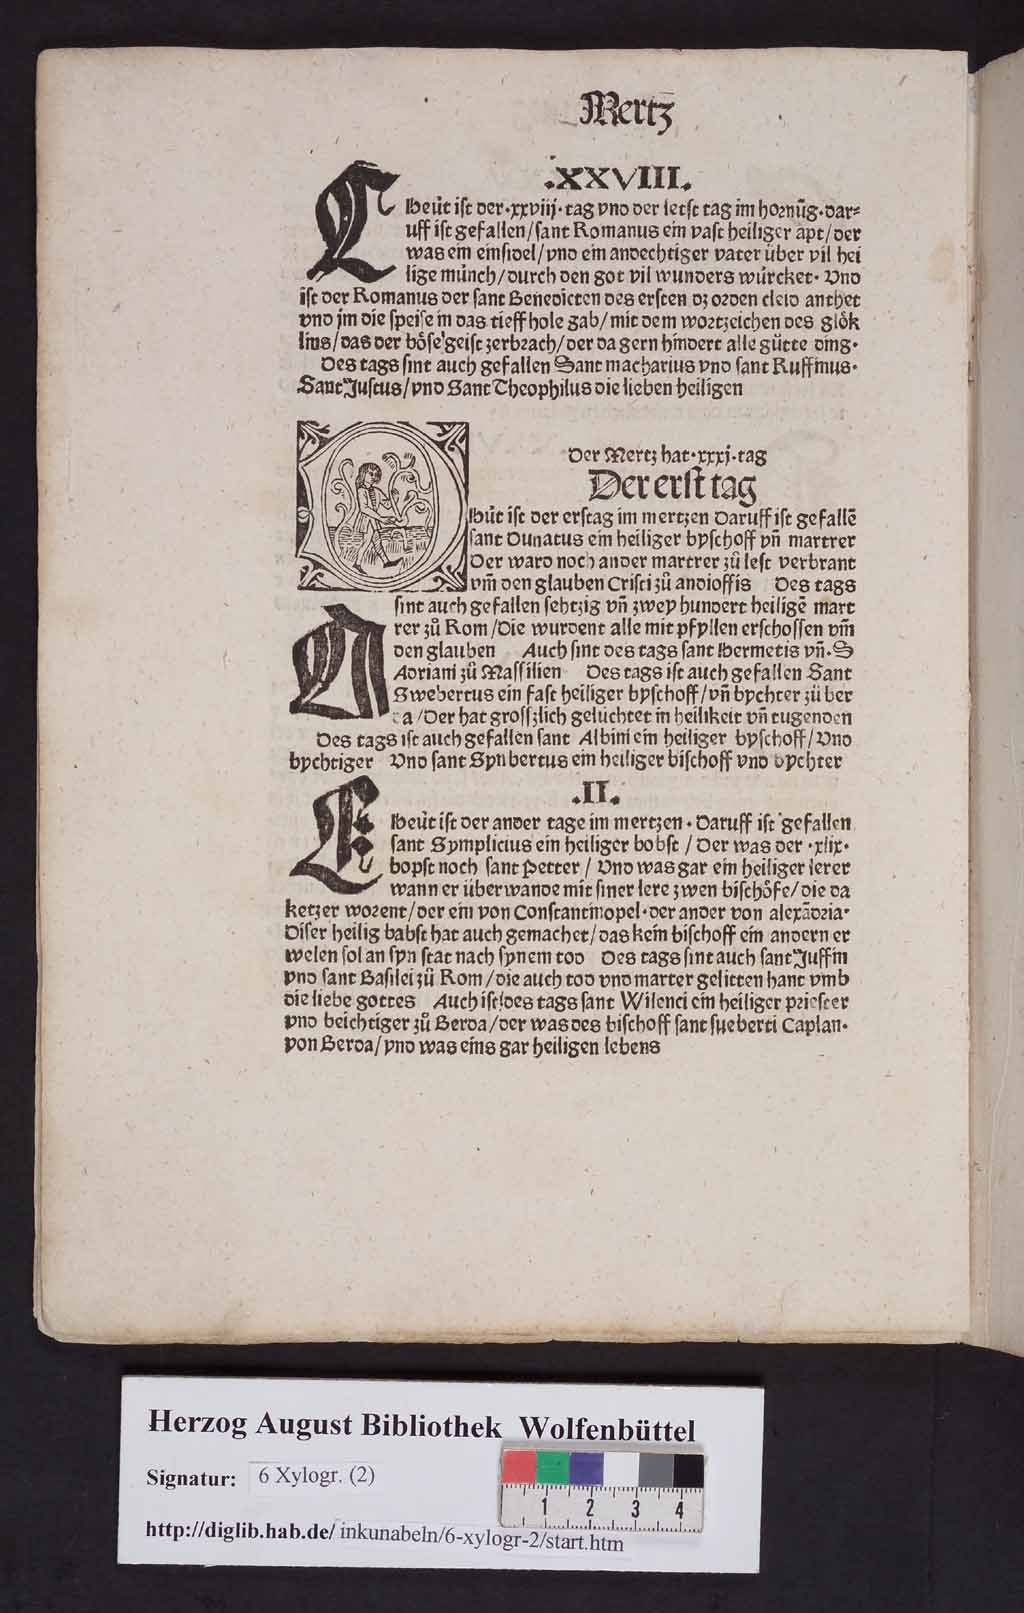 Mertz
.XXVIII.
Heüt ist der·xxviij·tag vnd der letst tag im hornũg·dar⸗
uff ist gefallen/sant Romanus ein vast heiliger apt/der
was ein einsidel/vnd ein andechtiger vater über vil hei
lige münch/durch den got vil wunders würcket· Vnd
ist der Romanus der sant Benedicten des ersten dz orden cleid anthet
vnd jm die speise in das tieff hole gab/mit dem wortzeichen des glök
lins/das der böse geist zerbrach/der da gern hindert alle gütte ding·
Des tags sint auch gefallen Sant macharius vnd sant Ruffinus·
Sant Justus/vnd Sant Theophilus die lieben heiligen
Der Mertz hat·xxxj·tag
Der erst tag
Hüt ist der erstag im mertzen Daruff ist gefallē
sant Dunatus ein heiliger byschoff vñ martrer
Der ward noch ander martrer zů lest verbrant
vm̄ den glauben Cristi zů andioffis Des tags
sint auch gefallen sehtzig vñ zwey hundert heiligē mart
rer zů Rom/Die wurdent alle mit pfyllen erschossen vm̄
den glauben Auch sint des tags sant Hermetis vñ·S
Adriani zů Massilien Des tags ist auch gefallen Sant
Swebertus ein fast heiliger byschoff/vñ bychter zü ber
da/Der hat grosszlich gelüchtet in heilikeit vñ tugenden
Des tags ist auch gefallen sant Albini ein heiliger byschoff/Vnd
bychtiger Vnd sant Synbertus ein heiliger bischoff vnd bychter
.II.
Heüt ist der ander tage im mertzen· Daruff ist gefallen
sant Symplicius ein heiliger bobst/Der was der·xlix·
bopst noch sant Petter/Vnd was gar ein heiliger lerer
wann er überwande mit siner lere zwen bischöfe/die da
ketzer worent/der ein von Constantinopel·der ander von alexādria·
Diser heilig babst hat auch gemachet/das kein bischoff ein andern er
welen sol an syn stat nach synem tod Des tags sint auch sant Juffin
vnd sant Basilei zů Rom/die auch tod vnd marter gelitten hant vmb
die liebe gottes Auch ist des tags sant Wilenci ein heiliger priester
vnd beichtiger zů Berda/der was des bischoff sant sueberti Caplan·
von Berda/vnd was eins gar heiligen lebens
Herzog August Bibliothek Wolfenbüttel
Signatur: 6 Xylogr. (2)
1 2 3 4
http://diglib.hab.de/inkunabeln/6-xylogr-2/start.htm